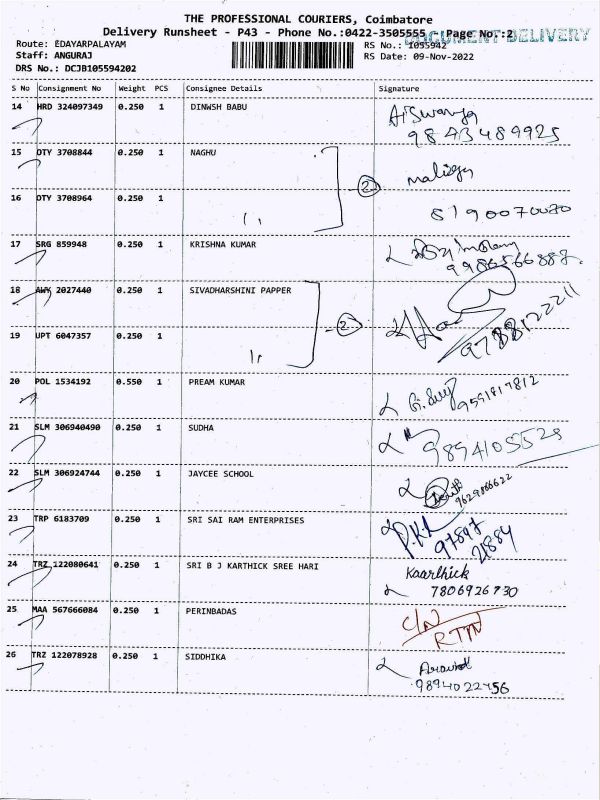 THE PROFESSIONAL COURIERS, Coimbatore
Delivery Runsheet - P43 - Phone No.:0422-3505555 - Page No.:2
DOCUMENT DELIVERY
Route: EDAYARPALAYAM
RS No.: 1055942
Staff: ANGURAJ
RS Date: 09-Nov-2022
DRS No.: DCJB105594202
S No Consignment No Weight PCS Consignee Details Signature
14 HRD 324097349 0.250 1 DINWSH BABU
Aiswarya
9843489925
15 OTY 3708844 0.250 1 NAGHU
2
16 OTY 3708964 0.250 1
8190070030
17 SRG 859948 0.250 1 KRISHNA KUMAR
9986566888
18 AWY 2027440 0.250 1 SIVADHARSHINI PAPPER
2
9788122211
19 UPT 6047357 0.250 1
20 POL 1534192 0.550 1 PREAM KUMAR
21 SLM 306940490 0.250 1 SUDHA
9894105525
22 SLM 306924744 0.250 1 JAYCEE SCHOOL
9629866622
23 TRP 6183709 0.250 1 SRI SAI RAM ENTERPRISES
P.K.L
97897
21884
24 TRZ 122080641 0.250 1 SRI B J KARTHICK SREE HARI
Kaarthick
7806926730
25 MAA 567666084 0.250 1 PERINBADAS
C/N
RTN
26 TRZ 122078928 0.250 1 SIDDHIKA
Aravind
9894022456